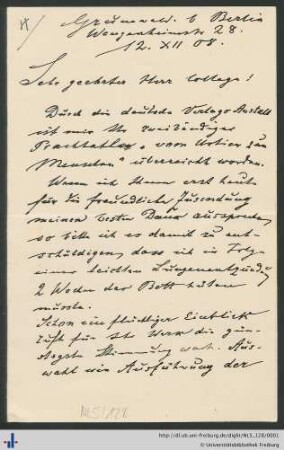 Grunewald b Berlin
Wangenheimstr 28.
12. XII 08.
Sehr geehrter Herr College!
Durch die deutsche Verlags Anstalt
ist mir Ihr zweibändiges
Prachtwerk „vom Urtier zum
Menschen“ überreicht worden.
Wenn ich Ihnen erst heute
für die freundliche Zusendung
meinen besten Dank ausspreche,
so bitte ich es damit zu ent-
schuldigen, dass ich in Folge
einer leichten Lungenentzündung
2 Wochen das Bett hüten
musste.
Schon ein flüchtiger Einblick
ruft für Ihr Werk die gün-
stigste Stimmung wach. Aus-
wahl und Ausführung der
NL5/128
http://dl.ub.uni-freiburg.de/diglit/NL5_128/0001
© Universitätsbibliothek Freiburg